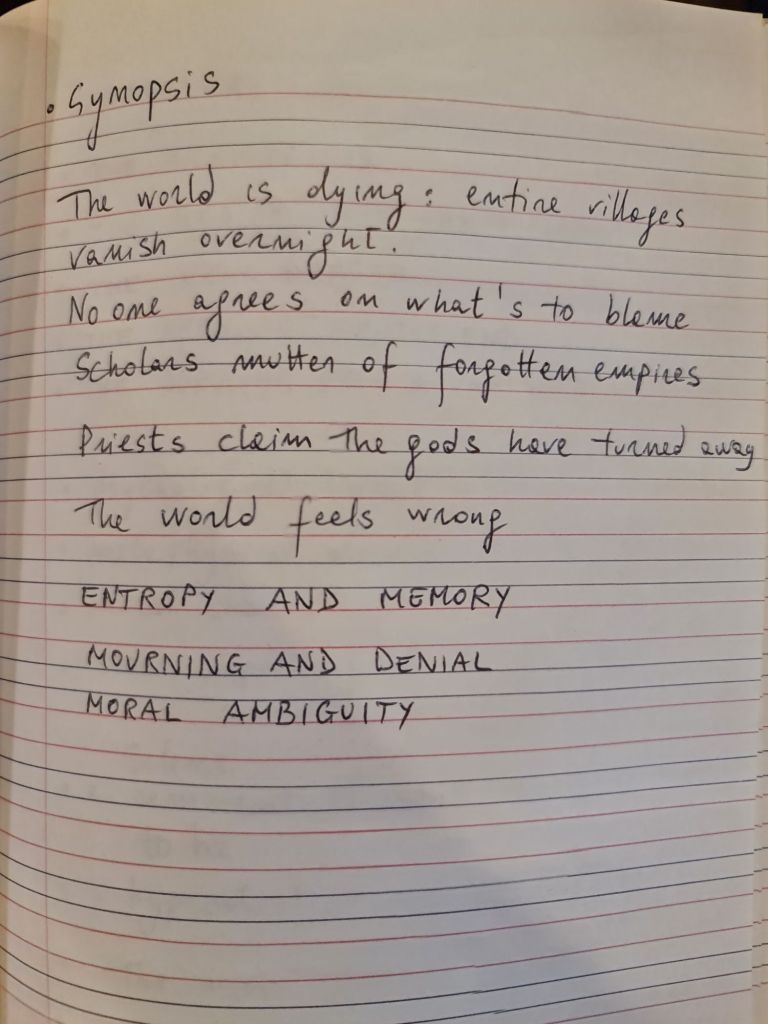 • Synopsis
The world is dying: entire villages
vanish overnight.
No one agrees on what's to blame
Scholars mutter of forgotten empires
Priests claim the gods have turned away
The world feels wrong
ENTROPY AND MEMORY
MOURNING AND DENIAL
MORAL AMBIGUITY